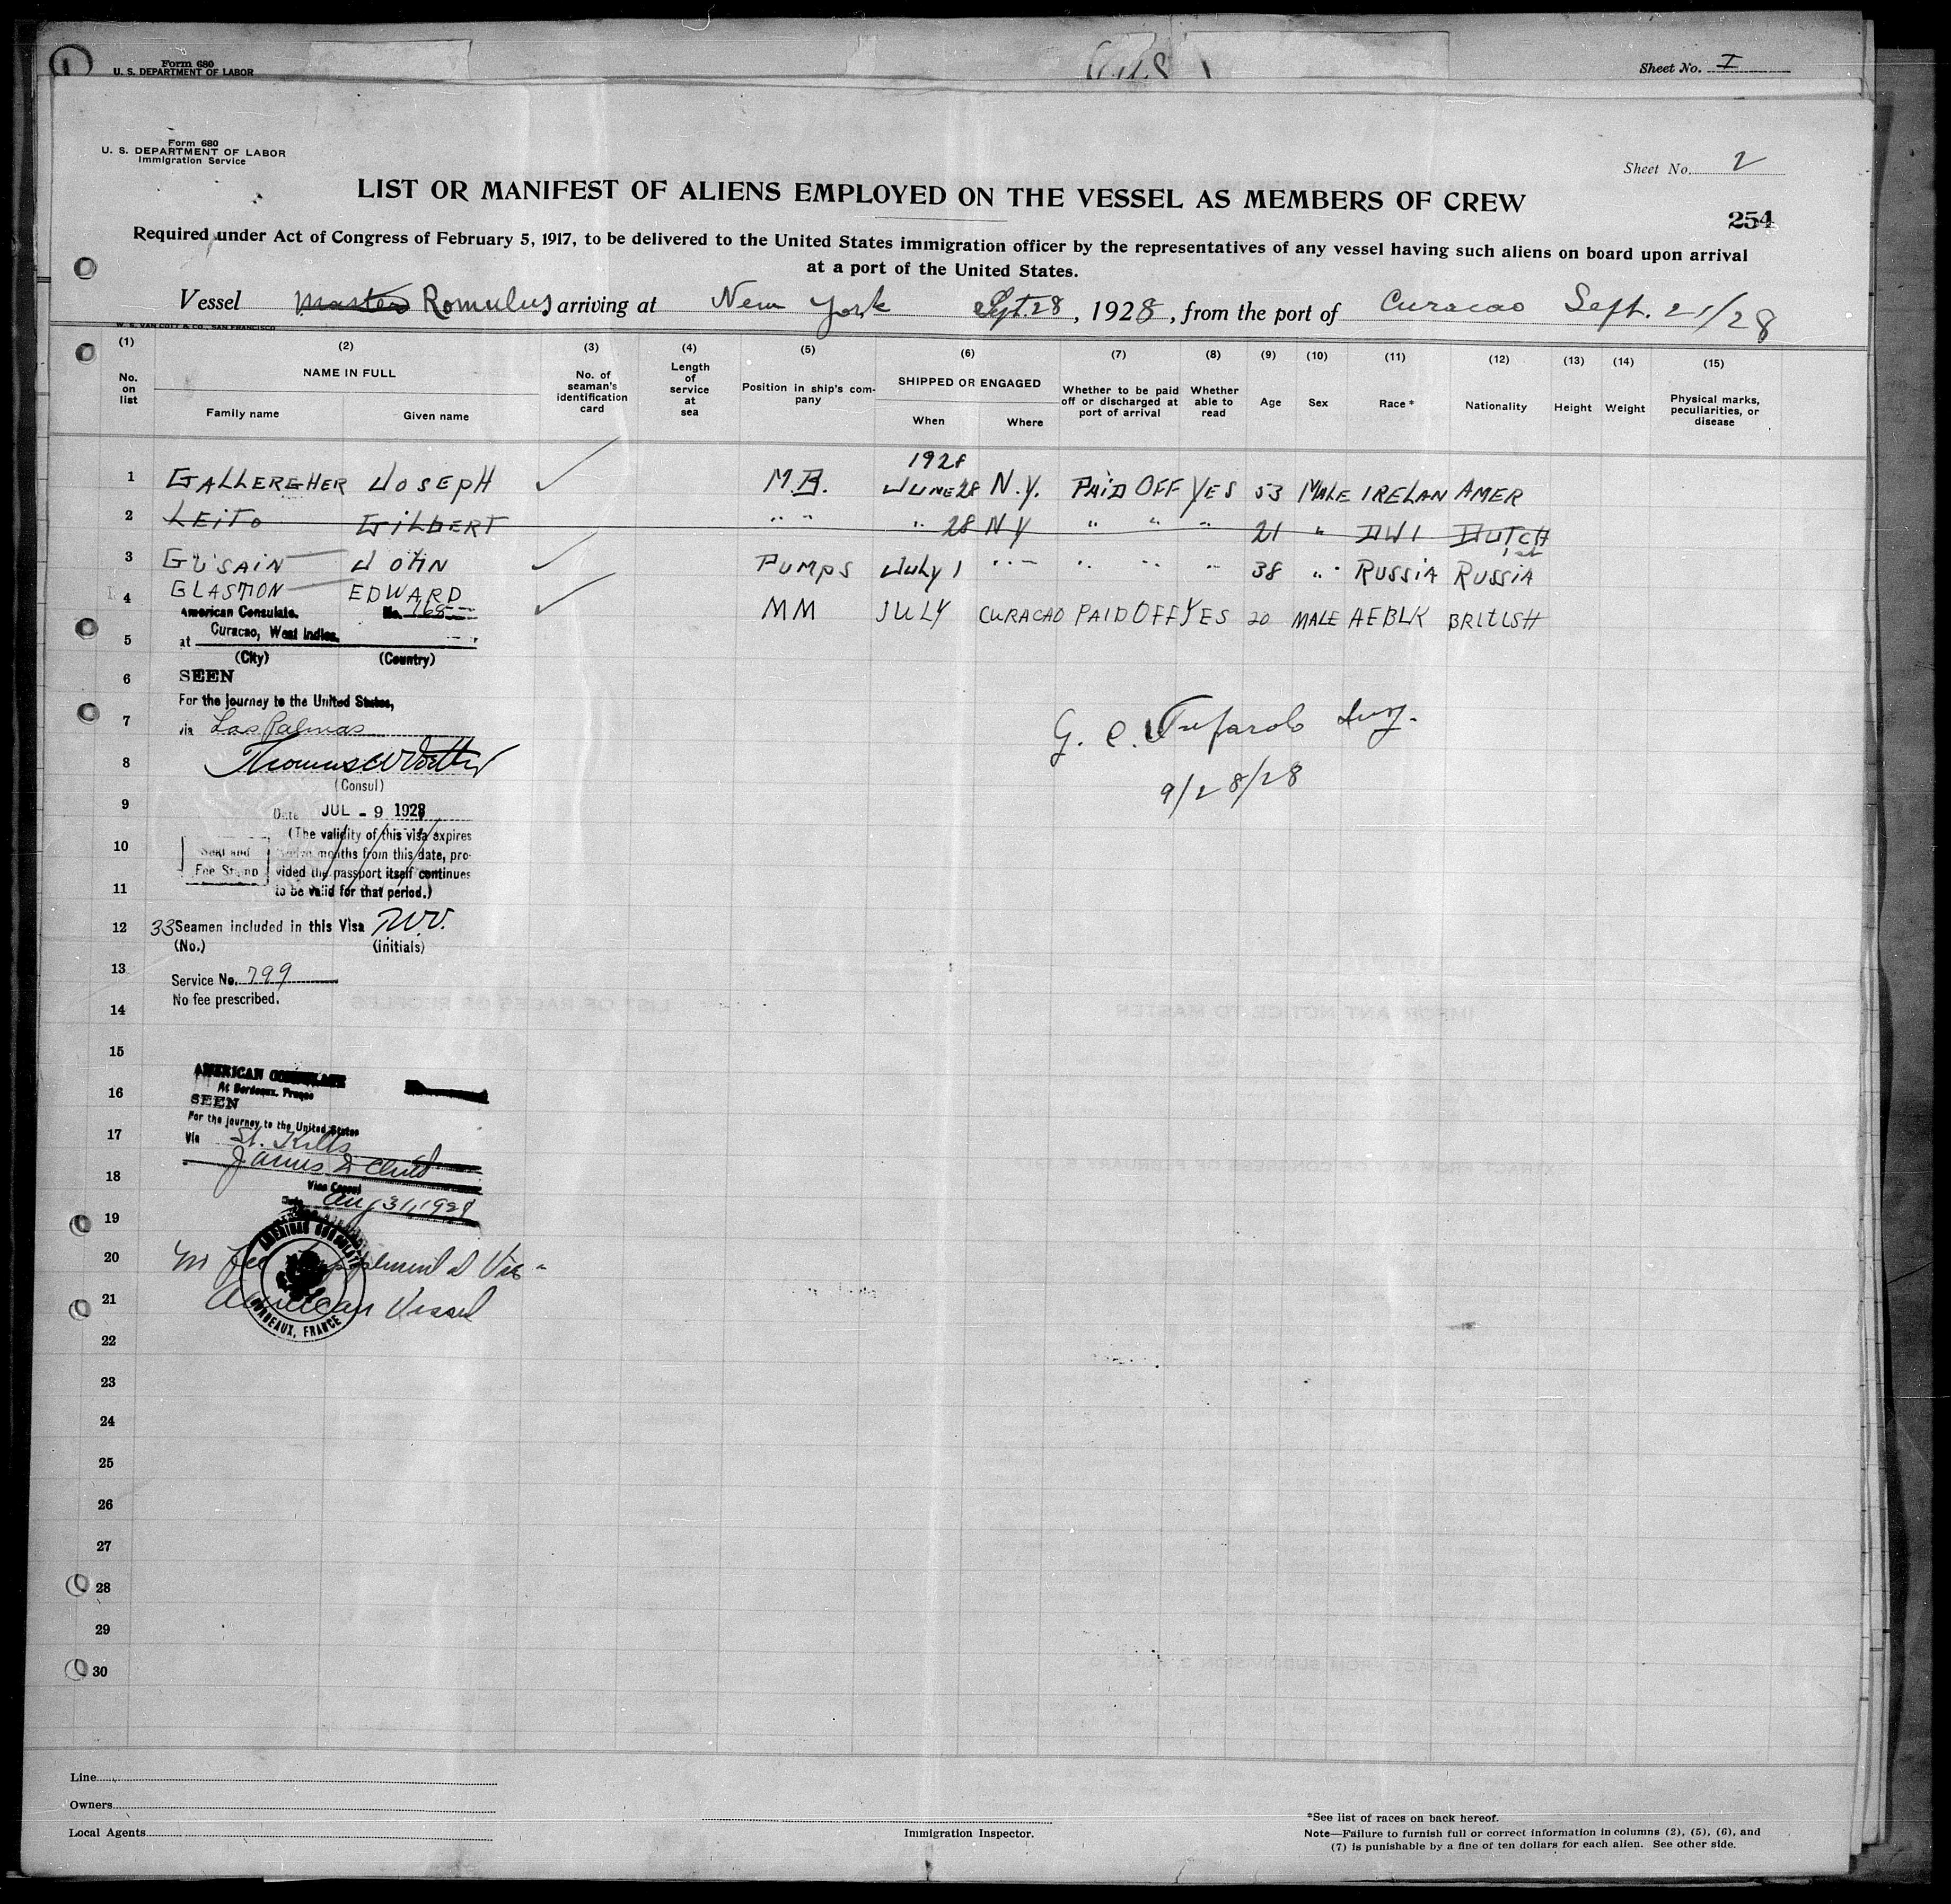 Form 680
U. S. DEPARTMENT OF LABOR
Sheet No. I
Form 680
U. S. DEPARTMENT OF LABOR
Immigration Service
Sheet No. 2
LIST OR MANIFEST OF ALIENS EMPLOYED ON THE VESSEL AS MEMBERS OF CREW
254
Required under Act of Congress of February 5, 1917, to be delivered to the United States immigration officer by the representatives of any vessel having such aliens on board upon arrival
at a port of the United States.
Vessel Master Romulus, arriving at New York Sept. 28, 1928, from the port of Curacao Sept. 21/28
W. S. VAN COTT & CO., SAN FRANCISCO
(1) (2) (3) (4) (5) (6) (7) (8) (9) (10) (11) (12) (13) (14) (15)
No. on list
NAME IN FULL
Family name Given name
No. of seaman's identification card
Length of service at sea
Position in ship's company
SHIPPED OR ENGAGED
When Where
Whether to be paid off or discharged at port of arrival
Whether able to read
Age
Sex
Race *
Nationality
Height
Weight
Physical marks, peculiarities, or disease
1928
1 GALLERGHER JOSEPH ✓ M.B. JUNE 28 N.Y. PAID OFF YES 53 MALE IRELAN AMER
2 LEITO GILBERT " " " 28 NY " " " 21 " DWI DUTCH
3 GUSAIN JOHN ✓ PUMPS JULY 1 " " " " " 38 " RUSSIA RUSSIA
4 GLASTION EDWARD ✓ MM JULY CURACAO PAID OFF YES 20 MALE AFBLK BRITISH
American Consulate. No. 768
5 at Curacao, West Indies.
(City) (Country)
6 SEEN
For the journey to the United States,
7 via Las Palmas
G. C. Inp.
8
(Consul)
9/28/28
9 Date JUL - 9 1928
(The validity of this visa expires
10 Seal and twelve months from this date, pro-
Fee Stamp vided the passport itself continues
11 to be valid for that period.)
12 33 Seamen included in this Visa W.V.
(No.) (initials)
13
Service No. 799
No fee prescribed.
14
15
AMERICAN CONSULATE
At Bordeaux, France
16 SEEN
For the journey to the United States
17 Via St. Kitts
18
Vice Consul
Date Aug 31, 1928
19
AMERICAN CONSULATE
20 No fee
21 American Vessel
BORDEAUX, FRANCE
22
23
24
25
26
27
28
29
30
Line
Owners
Local Agents
Immigration Inspector.
*See list of races on back hereof.
Note—Failure to furnish full or correct information in columns (2), (5), (6), and
(7) is punishable by a fine of ten dollars for each alien. See other side.